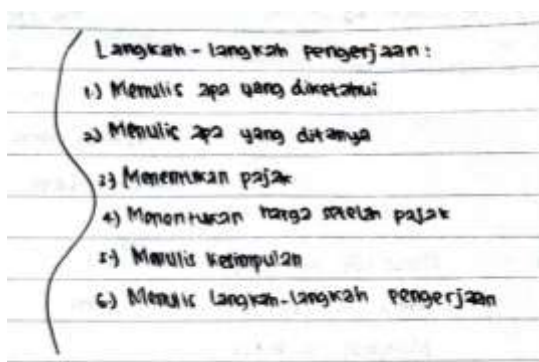 Langkah-langkah pengerjaan:
1.) Menulis apa yang diketahui
2) Menulis apa yang ditanya
3) Menentukan pajak
4) Menentukan harga setelah pajak
5) Menulis kesimpulan
6) Menulis langkah-langkah pengerjaan